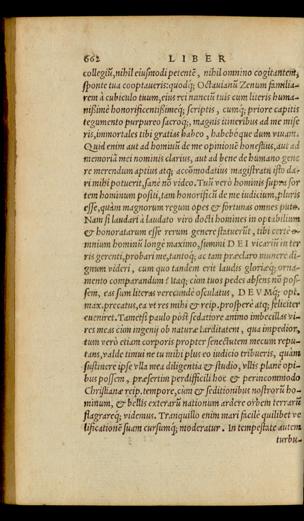 662 LIBER
collegiũ, nihil eiusmodi petentẽ, nihil omnino cogitantem,
sponte tua cooptaueris: quodq́; Octauianũ Zenum familia-
rem à cubiculo tuum, eius rei nunciũ tuis cum literis huma-
nißimè honorificentißimeq́; scriptis, cumq́; priore capitis
tegumento purpureo sacroq́;, magnis itineribus ad me mise
ris, immortales tibi gratias habeo, habebóque dum viuam.
Quid enim aut ad hominũ de me opinionẽ honestius, aut ad
memoriã mei nominis clarius, aut ad bene de humano gene
re merendum aptius atq; accõmodatius magistratu isto da-
ri mihi potuerit, sanè nõ video. Tuũ verò hominis supra sor
tem hominum positi, tam honorificũ de me iudicium, pluris
esse, quàm magnorum regum opes & fortunas omnes puto.
Nam si laudari à laudato viro docti homines in optabilium
& honoratarum esse rerum genere statuerũt, tibi certè o-
mnium hominũ longè maximo, summi DEI vicariũ in ter
ris gerenti, probari me, tantoq́; ac tam præclaro munere di-
gnum videri, cum quo tandem erit laudis gloriæq́; orna-
mento comparandum? Itaq; cùm tuos pedes absens nõ pos-
sem, eas sum literas verecundè osculatus, DEVMq́; opt.
max. precatus, ea vt res mihi & reip. prosperè atq; feliciter
eueniret. Tametsi paulo pòst sedatiore animo imbecillas vi-
res meas cùm ingenij ob naturæ tarditatem, qua impedior,
tum verò etiam corporis propter senectutem mecum repu-
tans, valde timui ne tu mihi plus eo iudicio tribueris, quàm
sustinere ipse vlla mea diligentia & studio, vllis planè opi-
bus possem, præsertim perdifficili hoc & perincommodo
Christianæ reip. tempore, cùm & seditionibus nostrorũ ho-
minum, & bellis exterarũ nationum ardere orbem terrarũ
flagrareq́; videmus. Tranquillo enim mari facilè quilibet ve
lificationẽ suam cursumq́; moderatur. In tempestate autem
turbu-